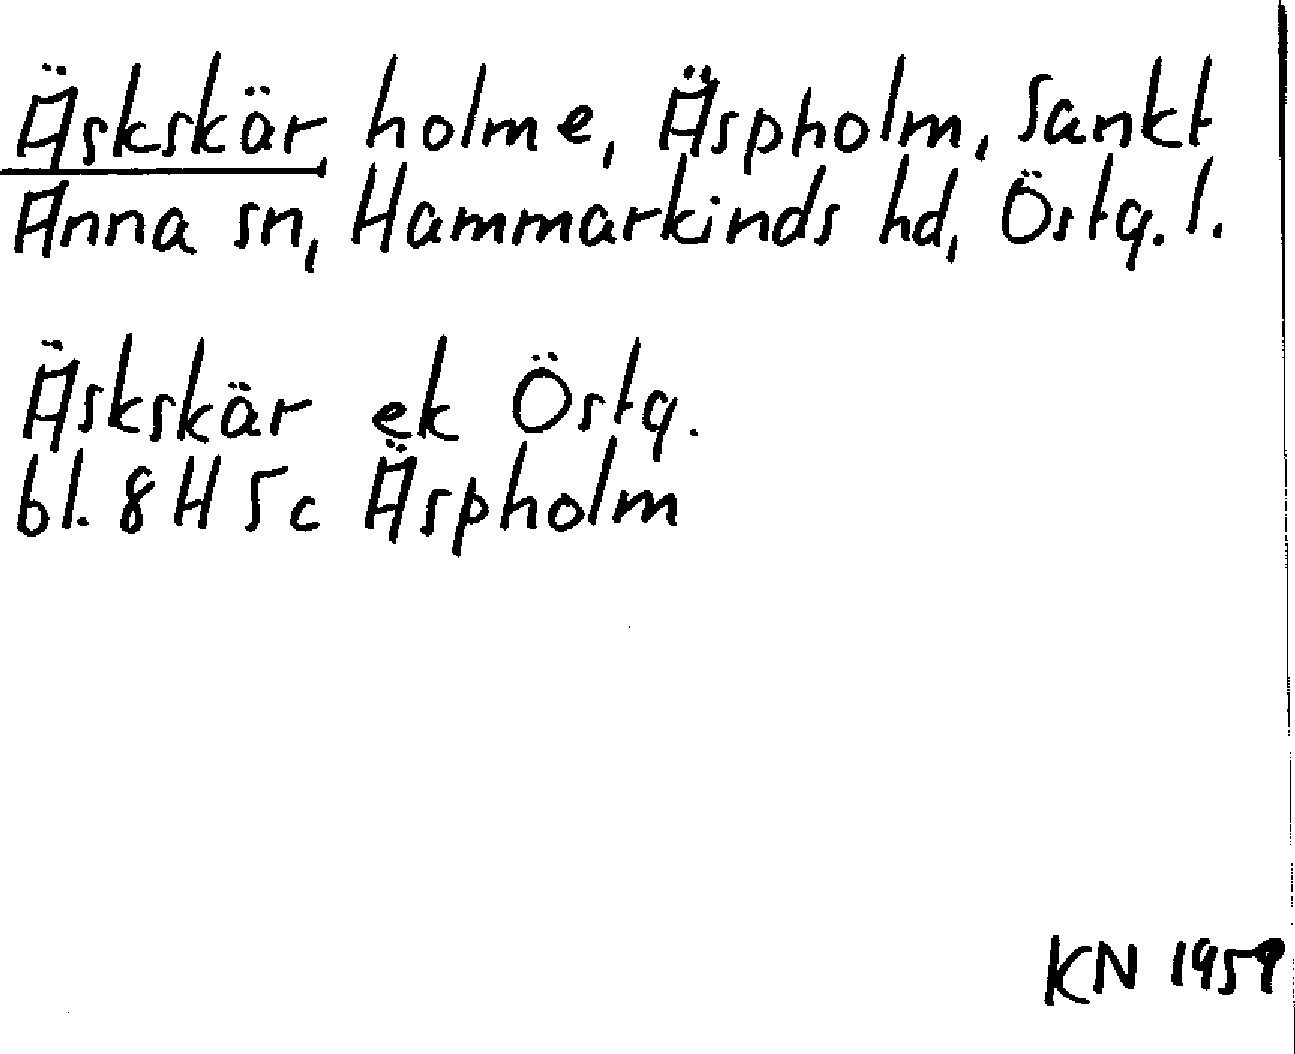 Äskskär, holme, Äspholm, Sankt
Anna sn, Hammarkinds hd, Östg. l.
Äskskär ek Östg.
bl. 8 H 5c Äspholm
KN 1959